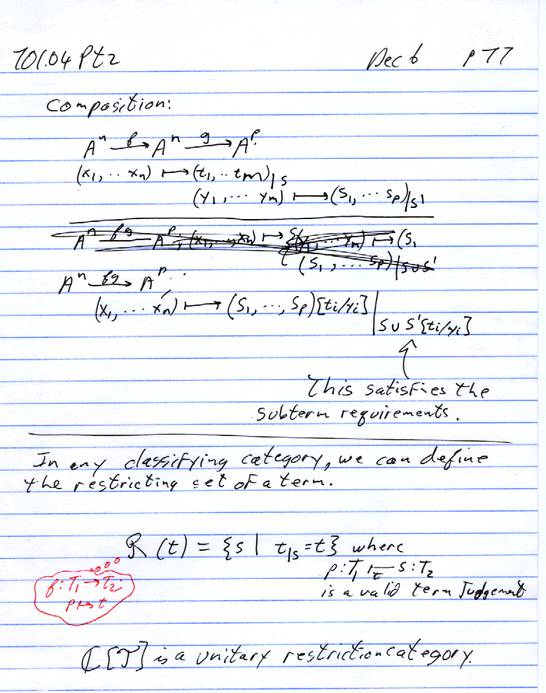 701.04 Pt 2 Dec 6 p 77
Composition:
Aⁿ —f→ Aⁿ —g→ Aᵖ
(x₁, ·· xₙ) ↦ (t₁, ·· tm)|S
(y₁, ··· yₘ) ↦ (S₁, ··· Sp)|S'
Aⁿ —fg→ Aᵖ
(x₁, ··· xₙ) ↦ (S₁, ··, Sp)[ti/yi]|S∪S'{ti/yi]
This satisfies the
subterm requirements.
In any classifying category, we can define
the restricting set of a term.
R(t) = {s | t|s = t} where
p:T₁ ⊢ s:T₂
is a valid term Judgement
f:T₁→T₂
p↦t
ℂ[T] is a unitary restriction category.